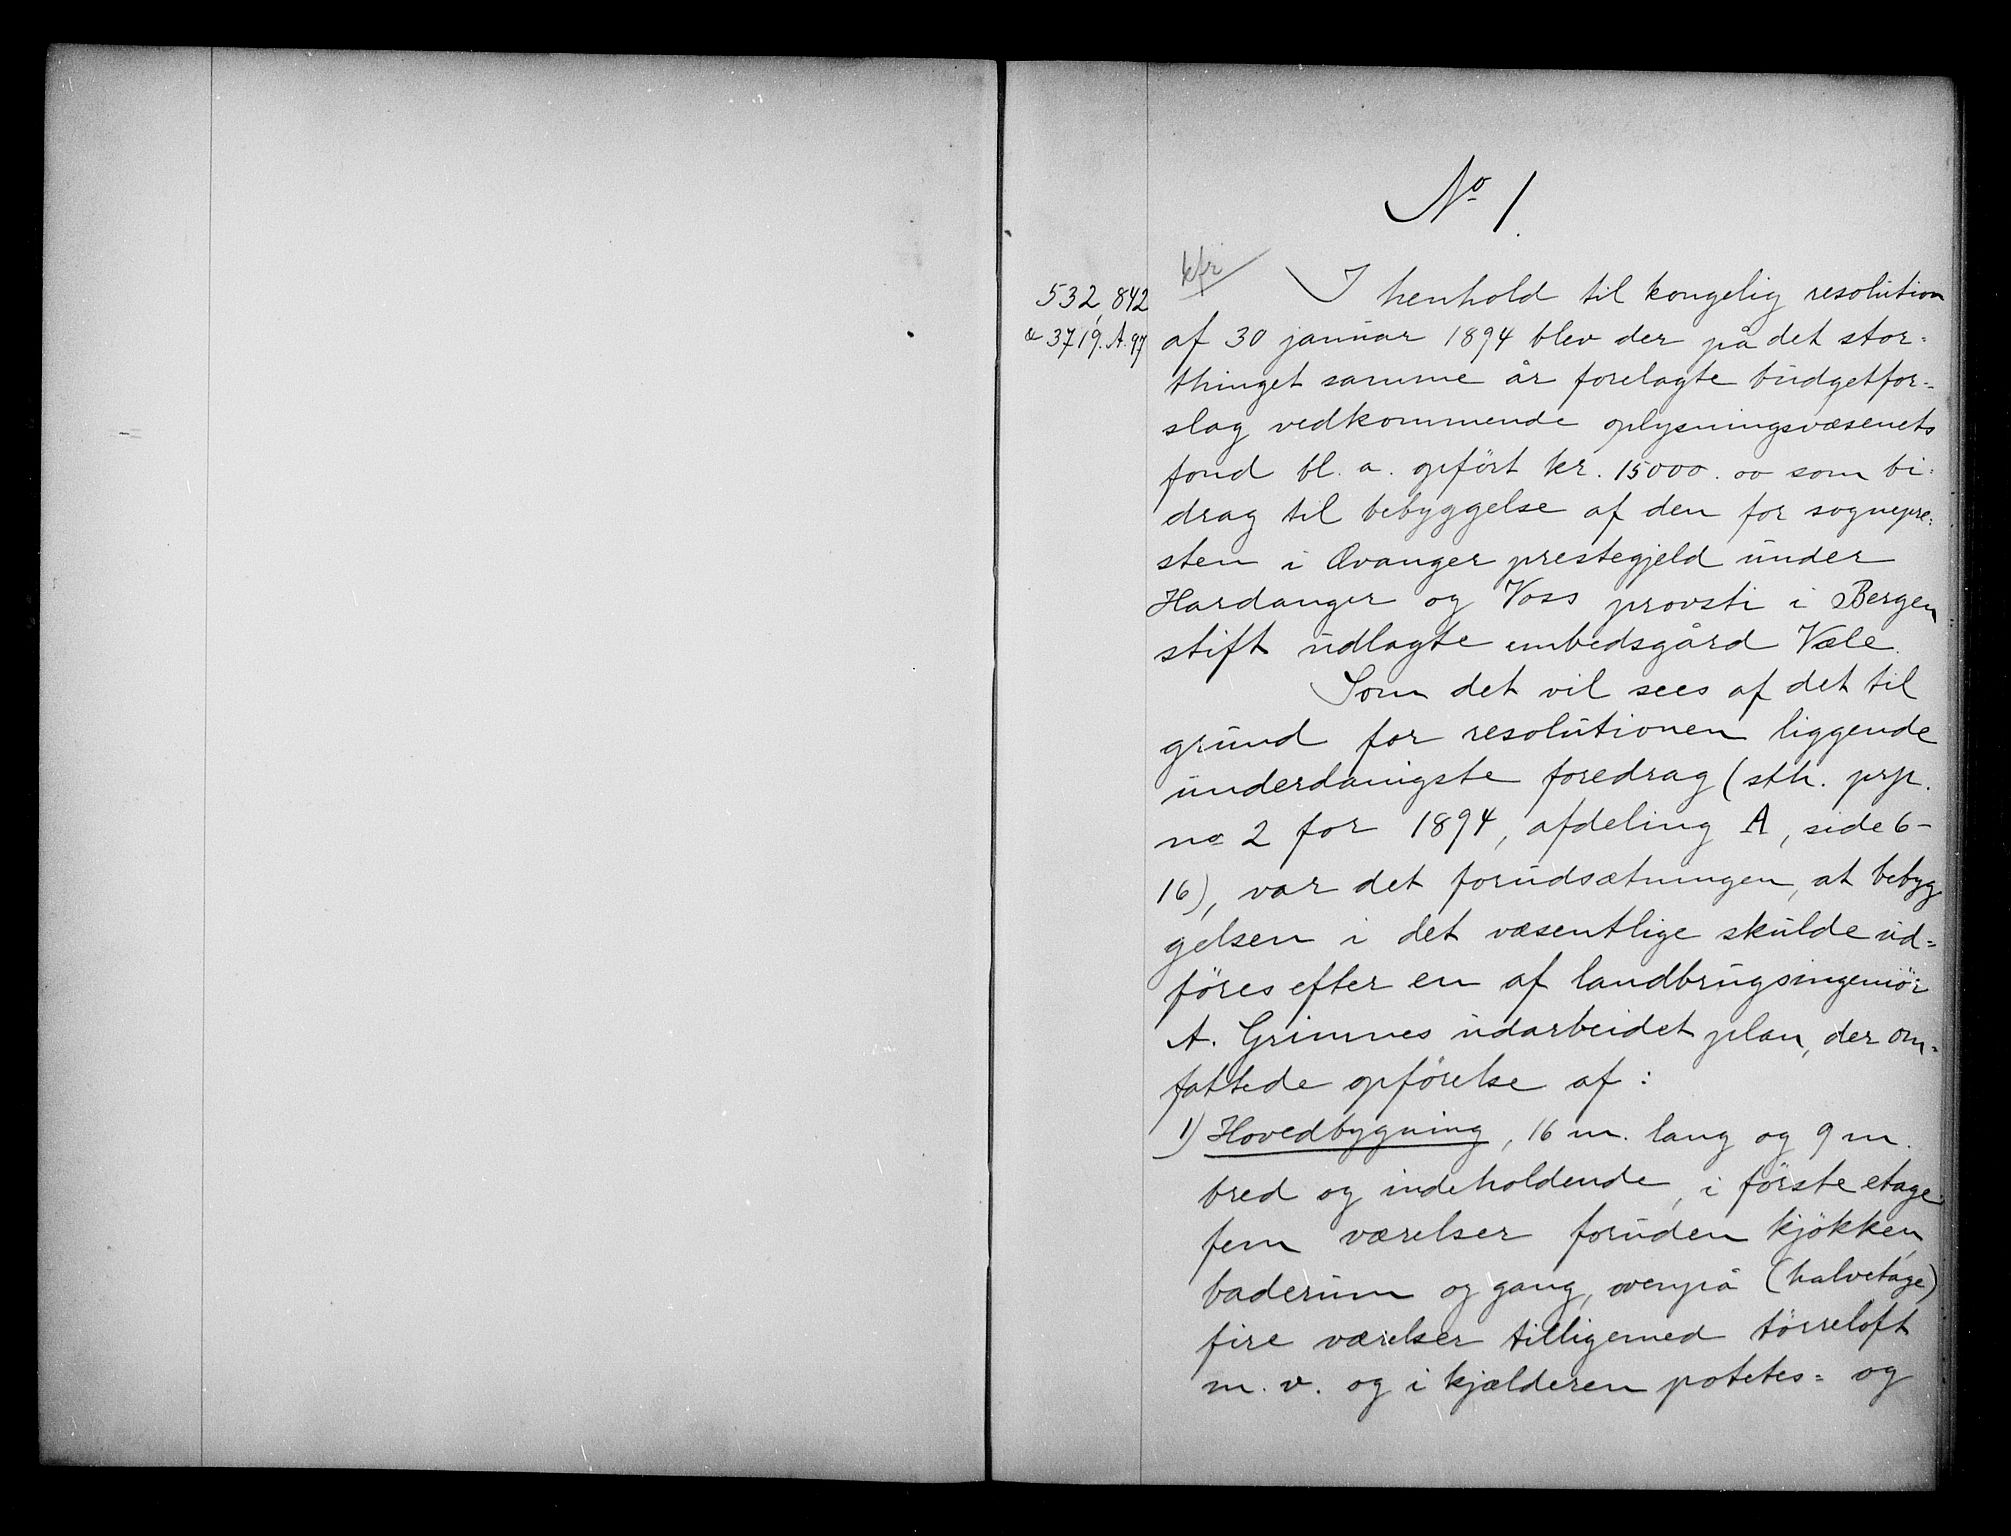 No 1.
kfr
532, 842
& 3719. A. 97
I henhold til kongelig resolution
af 30 januar 1894 blev der på det stor=
thinget samme år forelagte budgetfor=
slag vedkommende oplysningsvæsenets
fond bl. a. opført kr. 15000.00 som bi=
drag til bebyggelse af den for sognepre=
sten i Evanger prestegjeld under
Hardanger og Voss provsti i Bergen
stift udlagte embedsgård Væle.
Som det vil sees af det til
grund for resolutionen liggende
underdanigste foredrag (sth. prp.
no 2 for 1894, afdeling A, side 6-
16), var det forudsætningen, at bebyg
gelsen i det væsentlige skulde ud=
føres efter en af landbrugsingeniør
A. Grimnes udarbeidet plan, der om=
fattede opførelse af:
1) Hovedbygning, 16 m. lang og 9 m.
bred og indeholdende, i første etage
fem værelser foruden kjøkken,
baderum og gang, ovenpå (halvetage)
fire værelser tilligemed tørreloft
m. v. og i kjælderen potetes= og